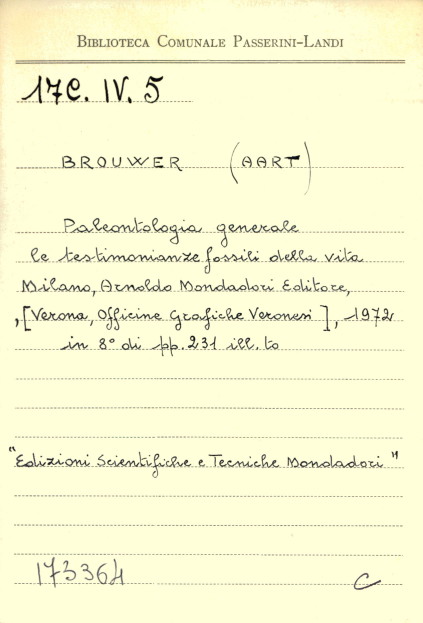 BIBLIOTECA COMUNALE PASSERINI-LANDI
17C. IV. 5
BROUWER (AART)
Paleontologia generale
le testimonianze fossili della vita
Milano, Arnoldo Mondadori Editore,
,[Verona, Officine Grafiche Veronesi], 1972
in 8° di pp. 231 ill.to
"Edizioni Scientifiche e Tecniche Mondadori"
173364 C